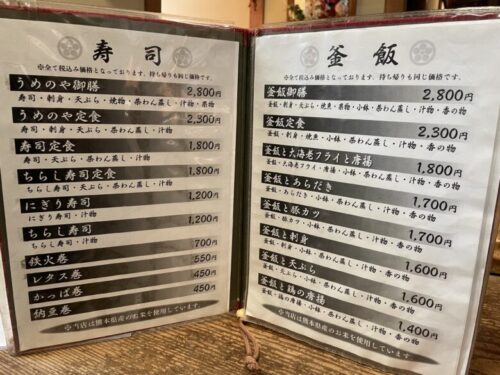 寿司
※全て税込み価格となっております。持ち帰りも同じ価格です。
うめのや御膳 2,800円
寿司・刺身・天ぷら・焼物・茶わん蒸し・汁物・果物
うめのや定食 2,300円
寿司・刺身・天ぷら・茶わん蒸し・汁物
寿司定食 1,800円
寿司・天ぷら・茶わん蒸し・汁物
ちらし寿司定食 1,800円
ちらし寿司・天ぷら・茶わん蒸し・汁物
にぎり寿司 1,200円
にぎり寿司・汁物
ちらし寿司 1,200円
ちらし寿司・汁物
鉄火巻 700円
レタス巻 550円
かっぱ巻 450円
納豆巻 450円
※当店は熊本県産のお米を使用しています。
釜飯
※全て税込み価格となっております。持ち帰りも同じ価格です。
釜飯御膳 2,800円
釜飯・刺身・天ぷら・焼魚・果物・小鉢・茶わん蒸し・汁物・香の物
釜飯定食 2,300円
釜飯・刺身・焼魚・小鉢・茶わん蒸し・汁物・香の物
釜飯と大海老フライと唐揚 1,800円
釜飯・大海老フライ・唐揚・小鉢・茶わん蒸し・汁物・香の物
釜飯とあらだき 1,700円
釜飯・あらだき・小鉢・茶わん蒸し・汁物・香の物
釜飯と豚カツ 1,700円
釜飯・豚カツ・小鉢・茶わん蒸し・汁物・香の物
釜飯と刺身 1,600円
釜飯・刺身・小鉢・茶わん蒸し・汁物・香の物
釜飯と天ぷら 1,600円
釜飯・天ぷら・小鉢・茶わん蒸し・汁物・香の物
釜飯と鶏の唐揚 1,400円
釜飯・鶏の唐揚・小鉢・茶わん蒸し・汁物・香の物
※当店は熊本県産のお米を使用しています。